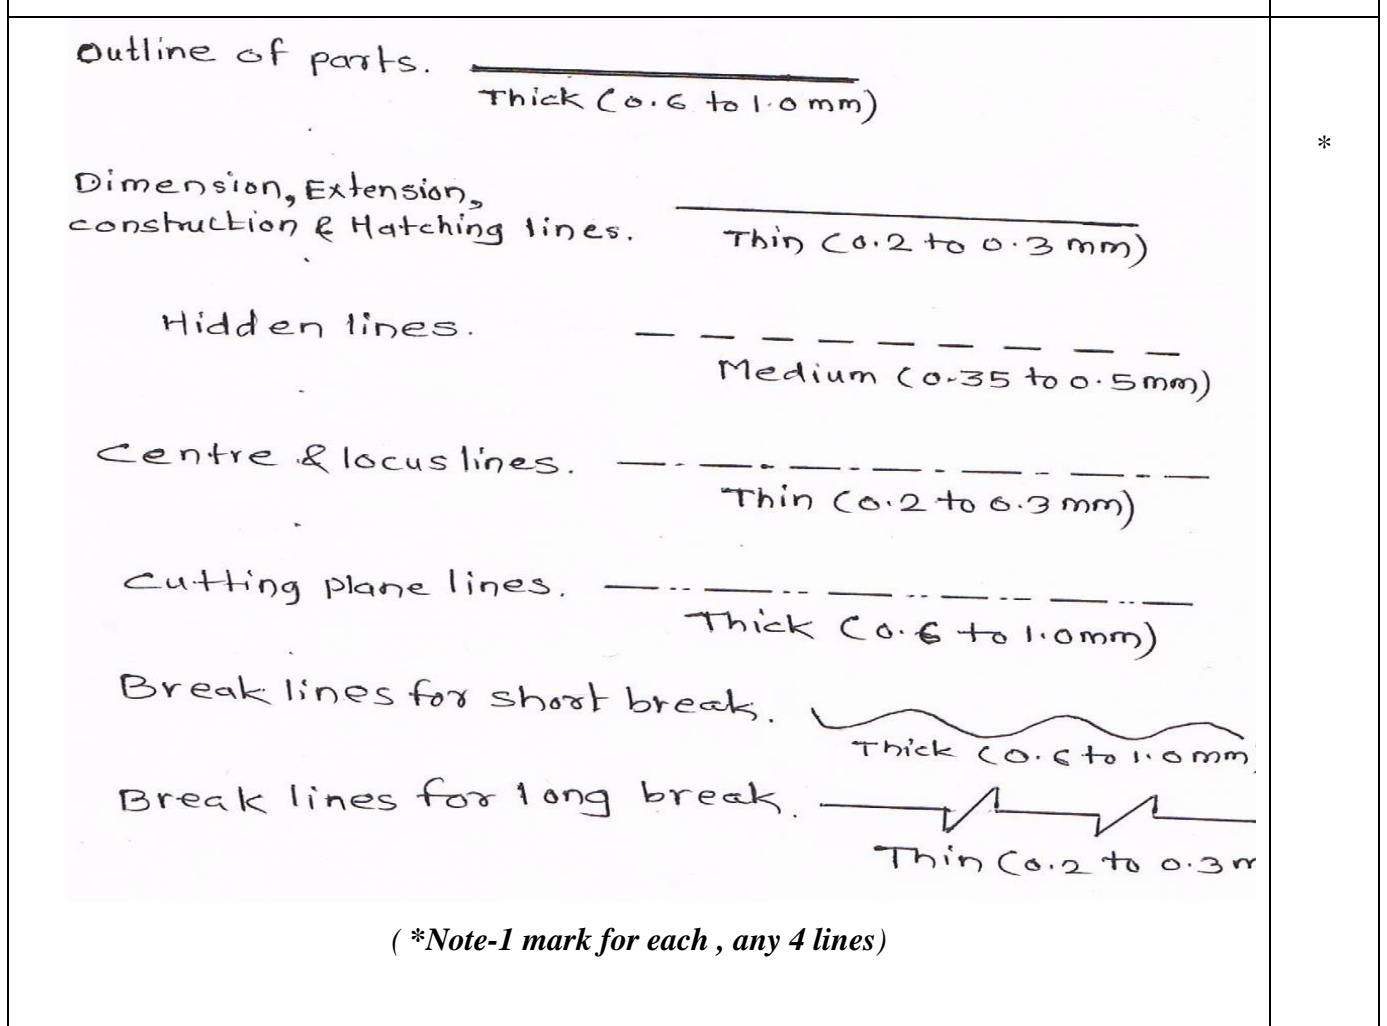 Outline of parts.
Thick (0.6 to 1.0 mm)
*
Dimension, Extension,
construction & Hatching lines.
Thin (0.2 to 0.3 mm)
Hidden lines.
Medium (0.35 to 0.5mm)
Centre & locus lines.
Thin (0.2 to 0.3 mm)
Cutting plane lines.
Thick (0.6 to 1.0mm)
Break lines for short break.
Thick (0.6 to 1.0 mm
Break lines for long break.
Thin (0.2 to 0.3 m
( *Note-1 mark for each , any 4 lines)